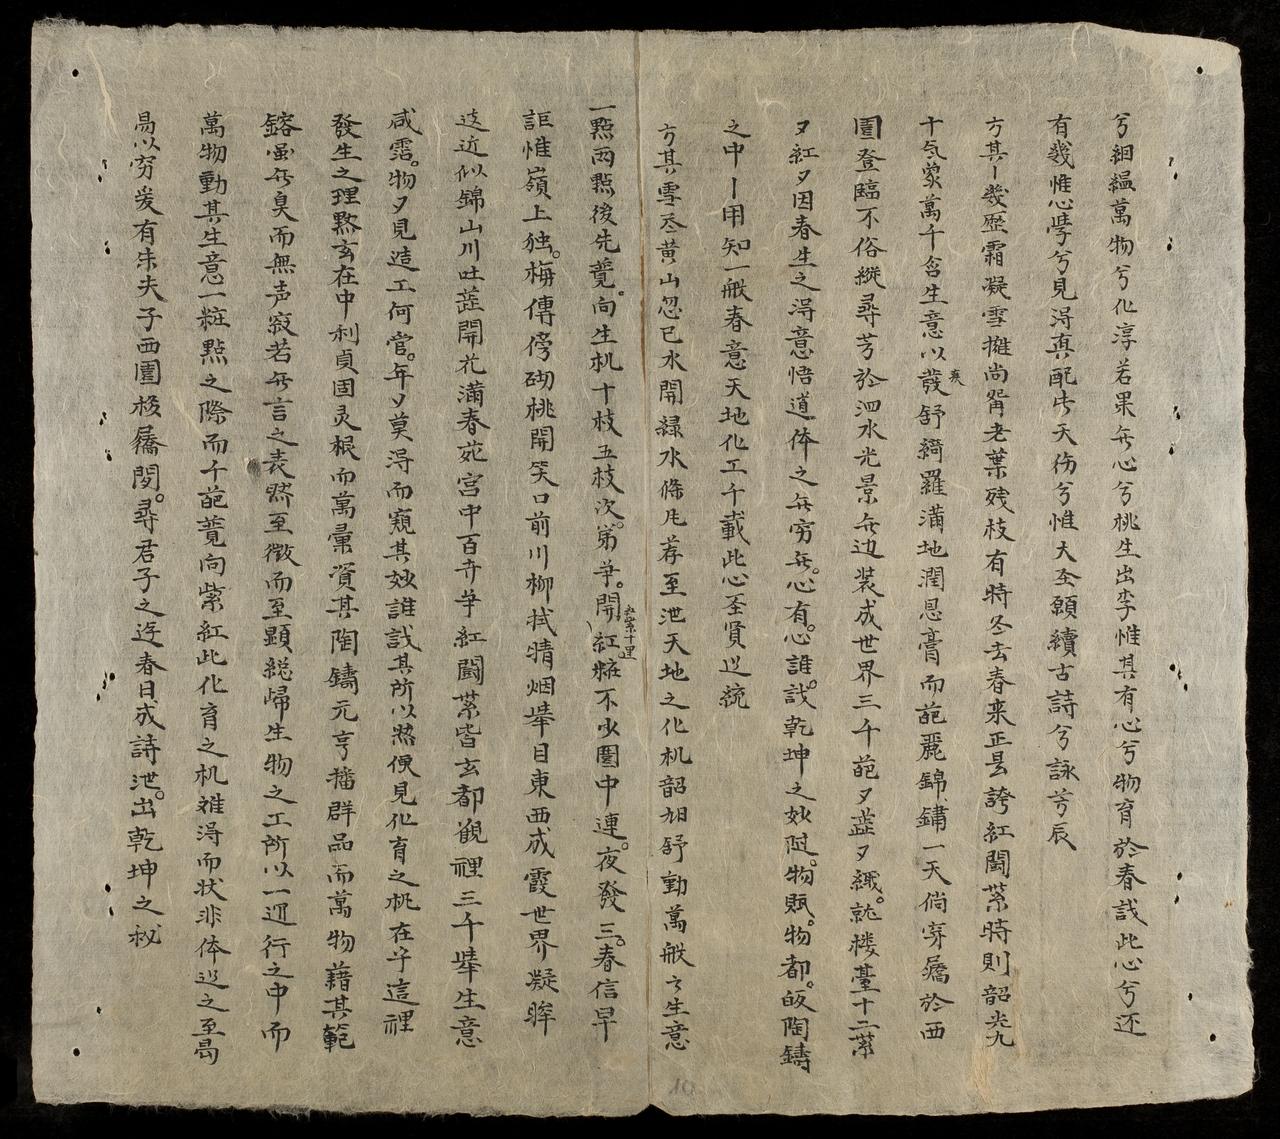 兮絪縕萬物兮化淳若果無心兮桃生出李惟其有心兮物育於春哉此心兮还
有幾惟心學兮見淂真配此天伤兮惟大全願續古詩兮詠芳辰
方其丨幾歷霜凝雪擁尚畱老葉残枝有時冬去春来正是誇紅闘紫時則韶光九
十气象萬千含生意以發舒綺羅满地潤恩膏而葩麗錦鏽一天倘穷屩於西
園登臨不俗縱尋芳於泗水光景無边装成世界三千葩夕蕋夕織就楼臺十二紫
夕紅夕因春生之淂意悟道体之無穷無心有心誰哉乾坤之妙随物賦物都皈陶鑄
之中丨用知一般春意天地化工千載此心圣賢道統
方其雪丕黄山忽已水開綠水條凡荐至泄天地之化机韶旭舒動萬般之生意
一點两點後先蕒向生机十枝五枝次第争開紅粧不少園中連夜發三春信早
詎惟嶺上独梅傳傍砌桃開笑口前川柳拭晴烟举目東西成霞世界凝眸
迖近似錦山川吐蕋開花满春苑宫中百卉争紅闘紫皆玄都觀裡三千举生意
咸霑物夕見造工何官年丷莫淂而窺其妙誰哉其所以然便見化育之机在乎這裡
發生之理默玄在中利貞固灵根而萬彙資其陶鑄元亨播群品而萬物藉其範
鎔虽無臭而無声寂若無言之表然至微而至顯総歸生物之工所以一运行之中而
萬物動其生意一粧點之際而千葩蕒向紫紅此化育之机难淂而状非体道之至曷
曷以穷爰有朱夫子西園柭屩閔尋君子之迓春日成詩泄出乾坤之秘